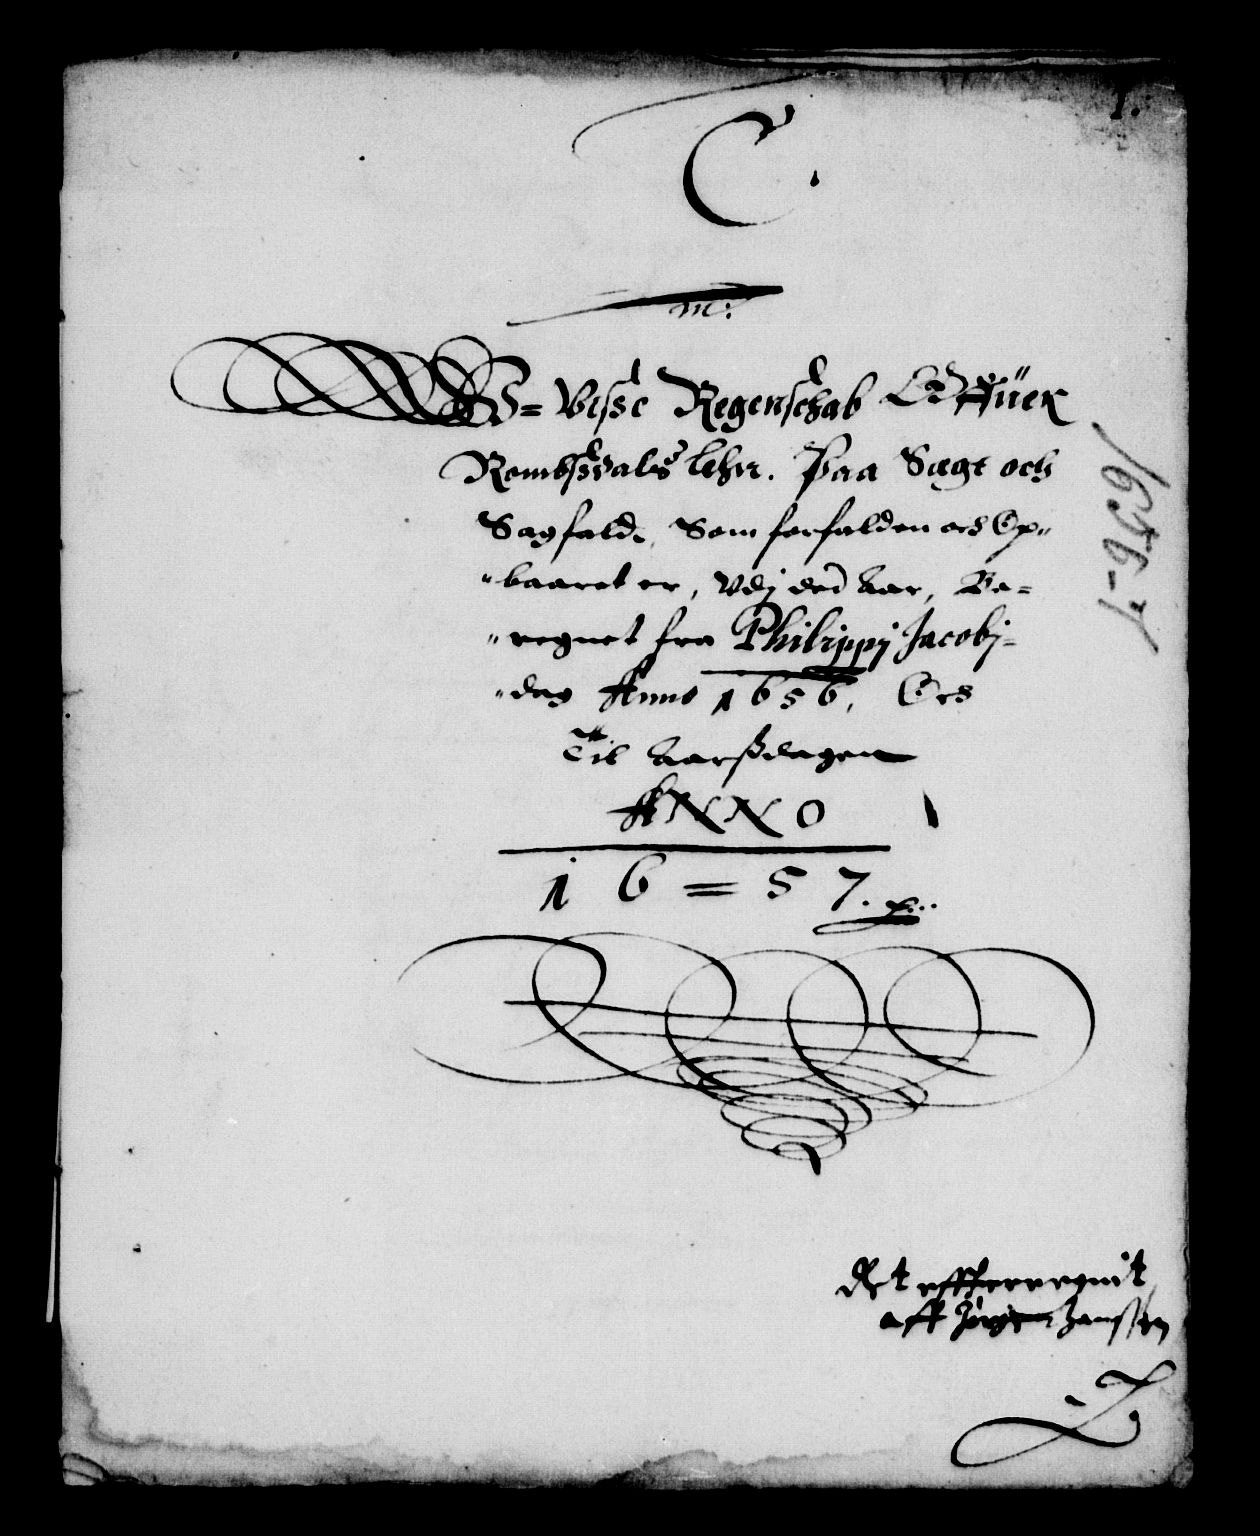 1.
C.
m:
V= Visse Regenschab Offuer
Rombsdals lehn. Paa Sagt och
Sagfald, Som forfalden och Op"
"baaret er, Vdj det Aar, Be=
"regnet fra Philippj Jacobj=
"dag Anno 1656, Och
Til Aarßdagen
ANNO
16=57. p..
1656-57
Det effterregnit
aff Jørgen Janssen